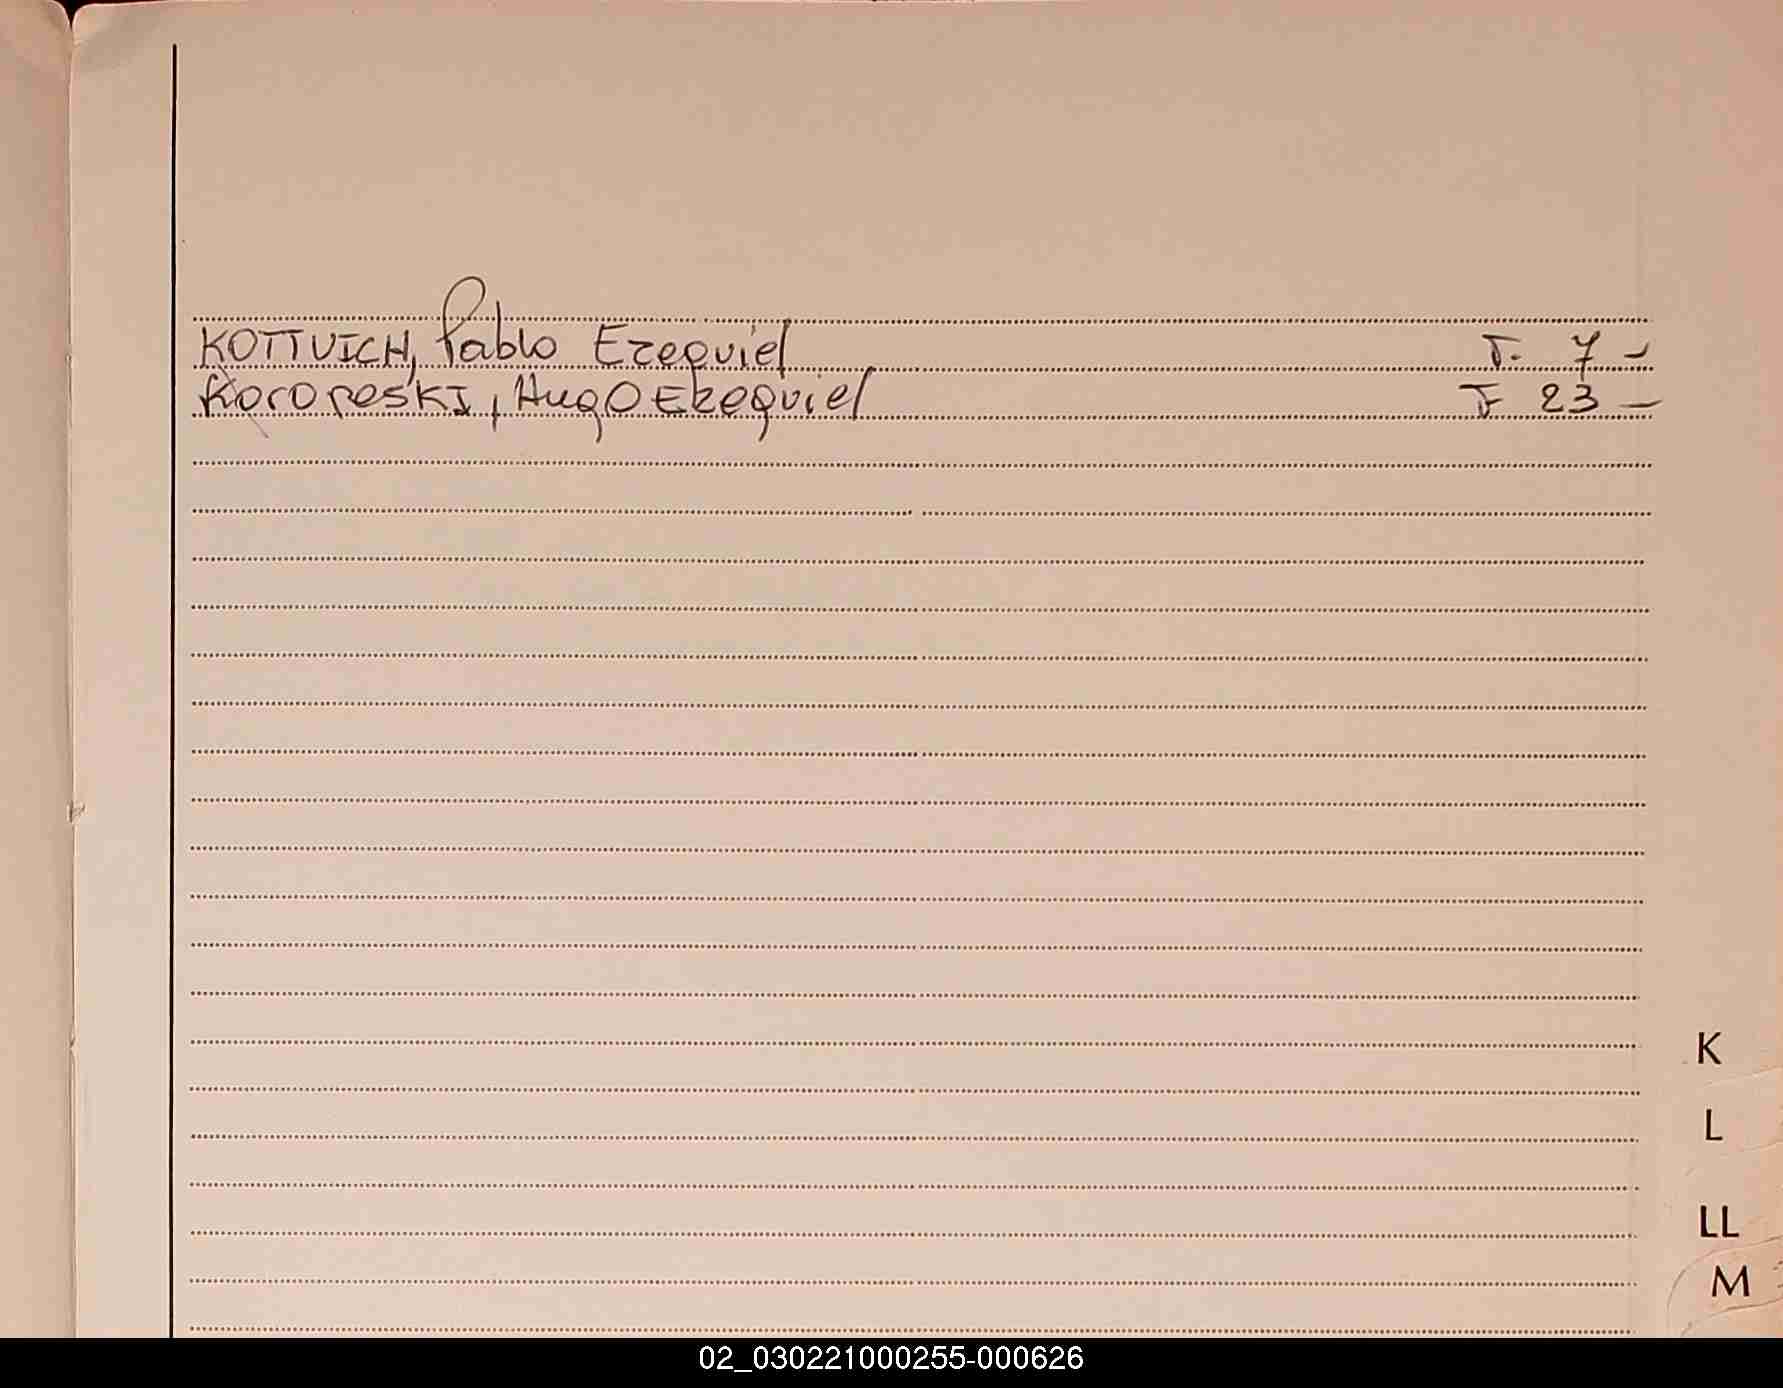 KOTTVICH, Pablo Ezequiel F. 7 -
KoroPesKI, HugO Ezequiel F 23 -
K
L
LL
M
02_030221000255-000626